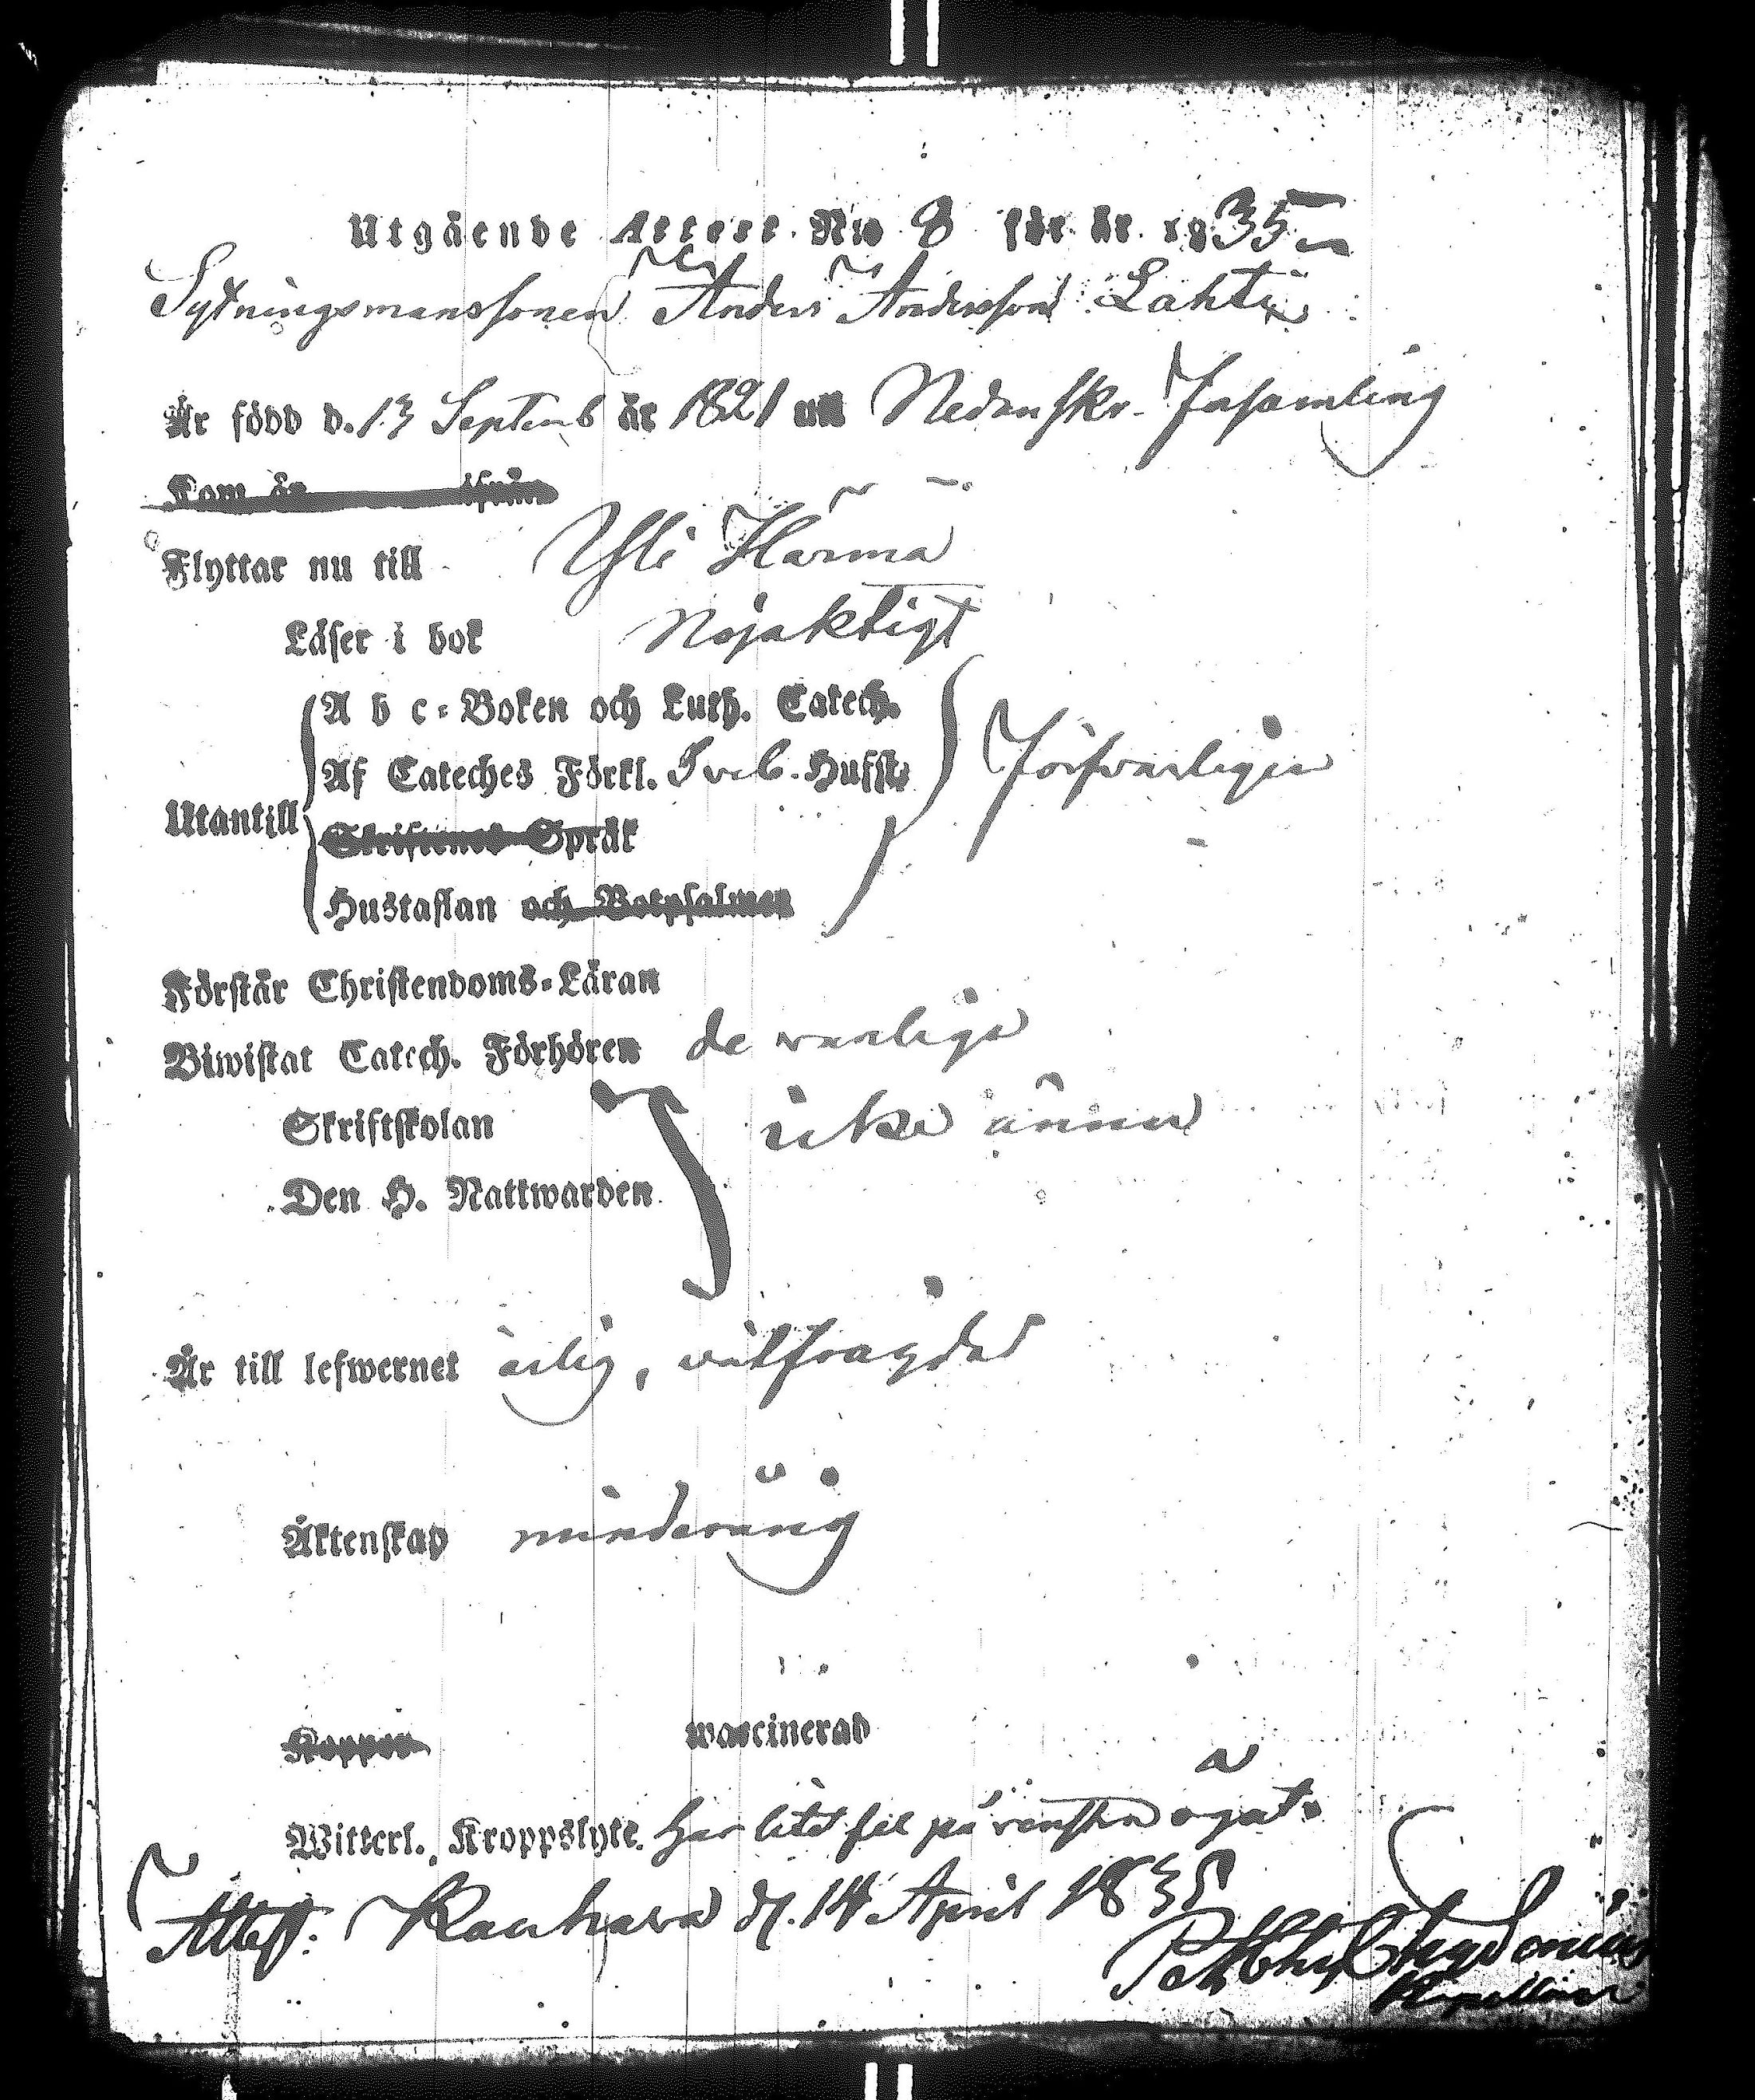 Utgående Attest. No 8 för år 1835
Sytningsmanssonen Anders Andersson Lahti
Är född d. 13 Septemb år 1821 uti Nedanskr. Församling
Kom år ifrån
Flyttar nu till Yli Härmä
Läser i bok Nöjaktigt
A b c-Boken och Luth. Catech.
Af Cateches Förkl. Sveb. Hufst. Försvarligen
Utantill
Skriftenes Språk
Hustaflan och Botpsalmen
Förstår Christendoms-Läran
Biwistat Catech. Förhören de vanliga
Skriftskolan icke ännu
Den H. Nattwarden
Är till lefwernet ärlig, välfrägdad
Äktenskap minderårig
Koppor waccinerad
Witterl. Kroppslyte. Har litet fel på vänstra ögat.
Attest: Kauhava d. 14 April 1835
Kapellan